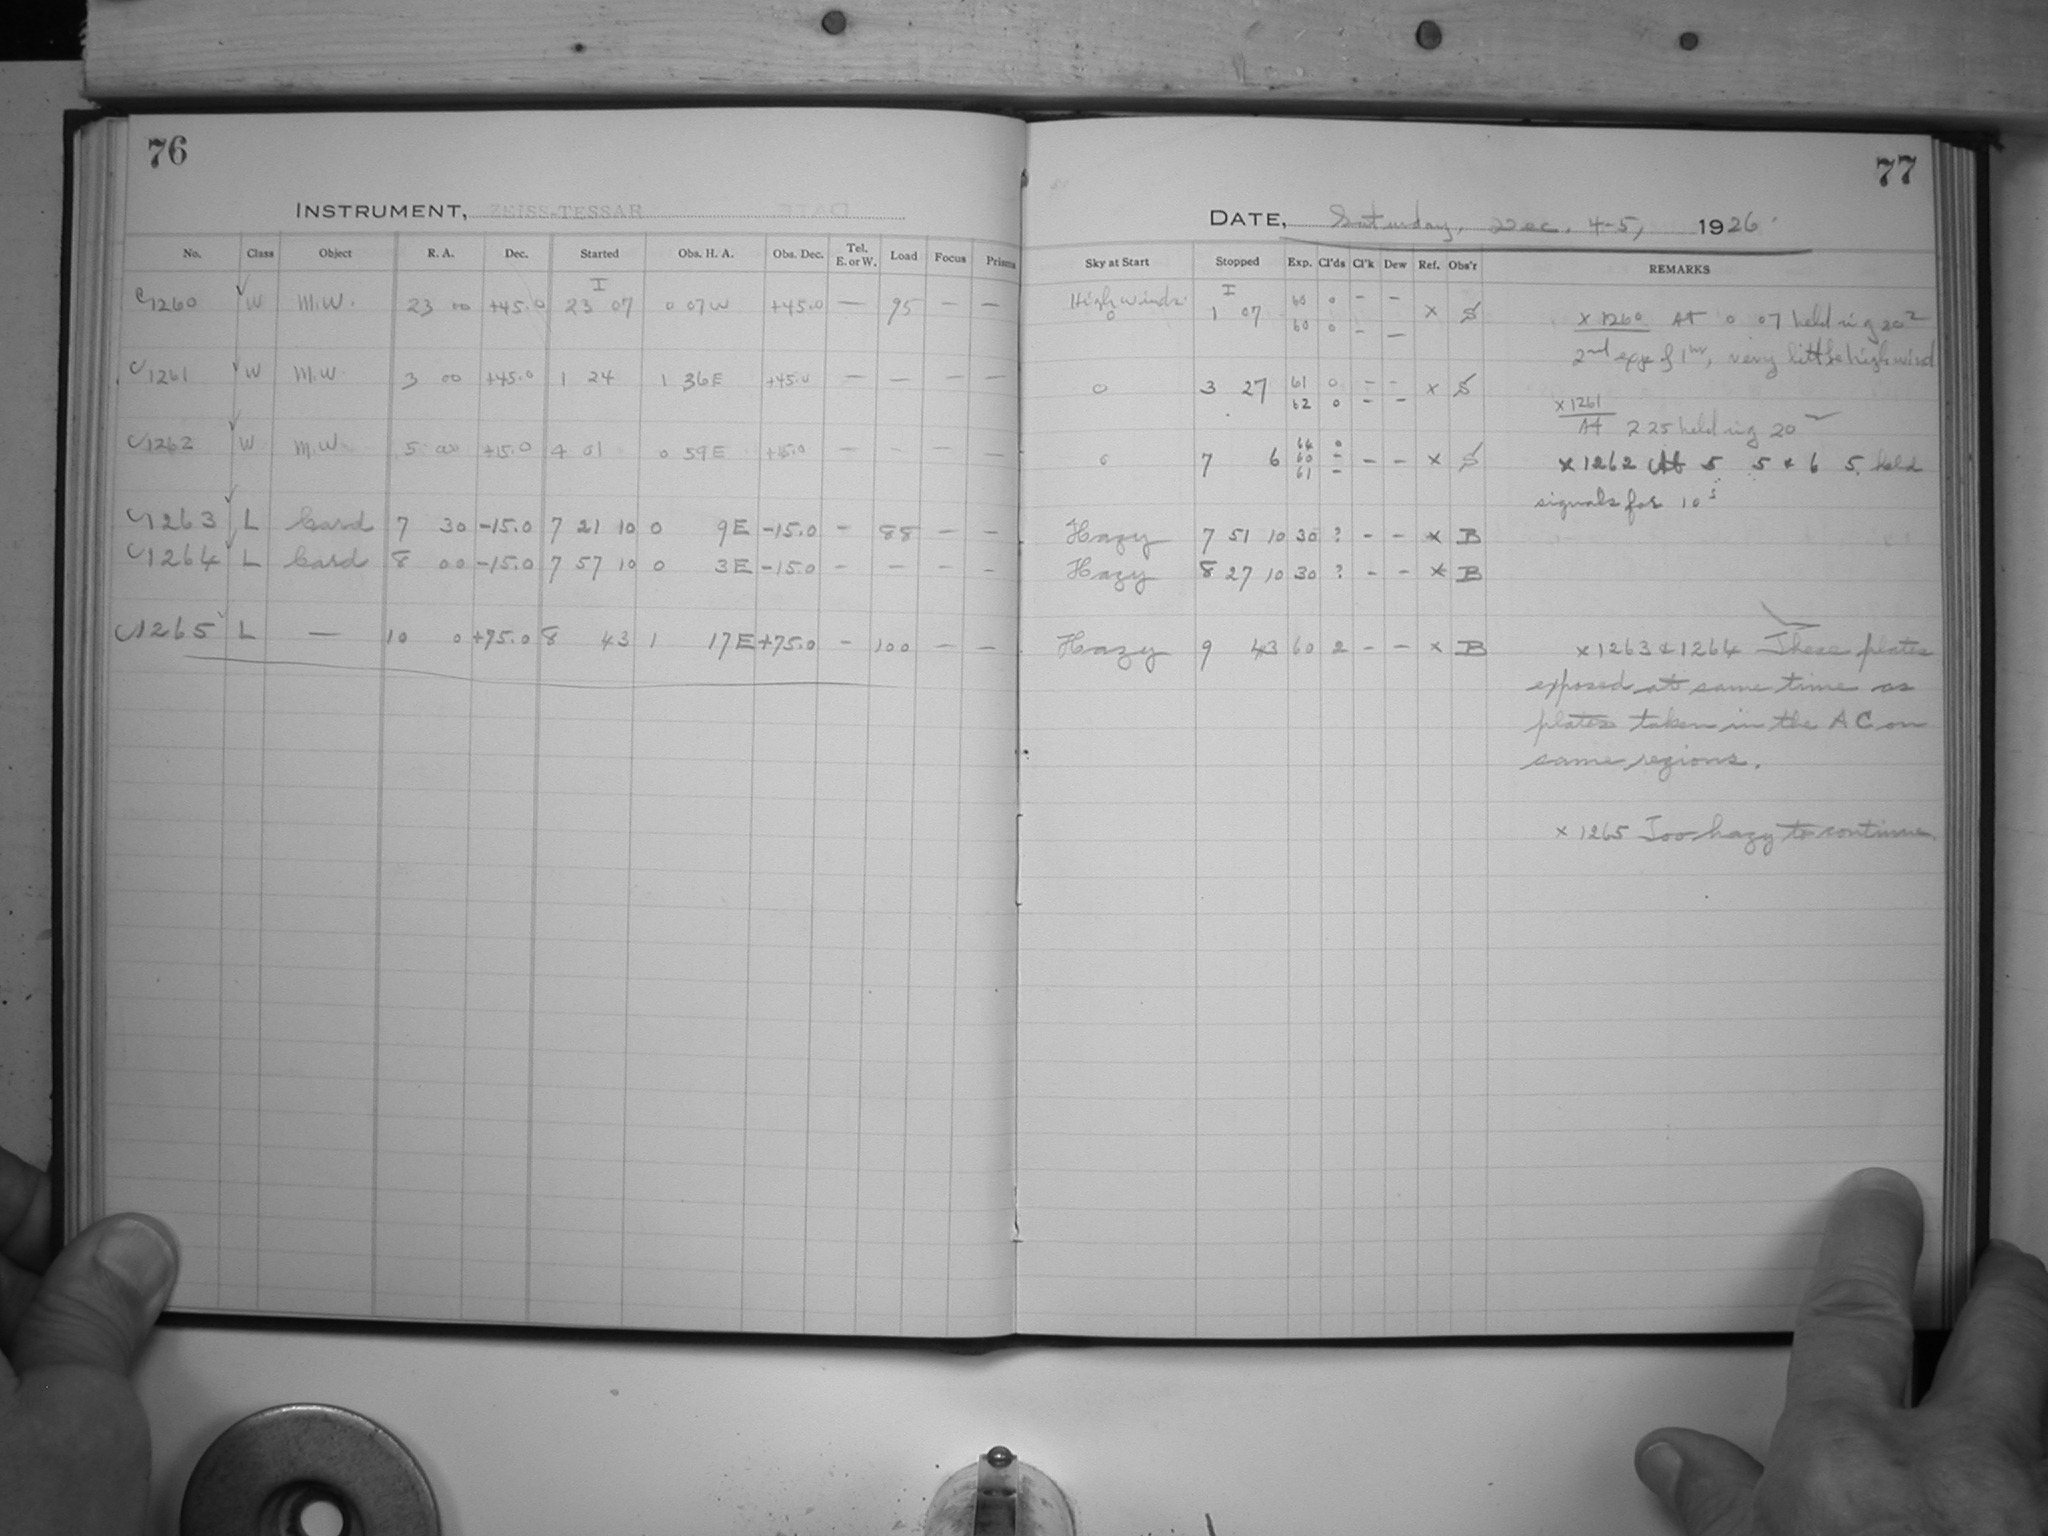 76
INSTRUMENT, ZEISS-TESSAR
No. Class Object R. A. Dec. Started Obs. H. A. Obs. Dec. Tel. E. or W. Load Focus Prisms
I
C1260 W M.W. 23 00 +45.0 23 07 0 07 W +45.0 — 95 — —
C1261 W M.W. 3 00 +45.0 1 24 1 36E +45.0 — — — —
C1262 W M.W. 5 00 +15.0 4 01 0 59E +15.0 — - — —
C1263 L Card 7 30 -15.0 7 21 10 0 9E -15.0 - 88 — —
C1264 L Card 8 00 -15.0 7 57 10 0 3E -15.0 - - — -
C1265 L — 10 0 +75.0 8 43 1 17E +75.0 - 100 — —
77
DATE, Saturday, Dec. 4-5, 1926
Sky at Start Stopped Exp. Cl'ds Cl'k Dew Ref. Obs'r REMARKS
High winds I 60 0 - -
0 1 07 x S
60 0 - —
x 1260 At 0 07 held sig 20
2nd exp of 1hr, very little high wind
0 3 27 61 0 - - x S
62 0 - -
x 1261
At 2 25 held sig 20
64 0
0 7 6 60 - - - x S
61 -
x 1262 At 5 5 & 6 5 held
signals for 10s
Hazy 7 51 10 30 ? - - x B
Hazy 8 27 10 30 ? - - x B
Hazy 9 43 60 2 - - x B
x 1263 & 1264 These plates
exposed at same time as
plates taken in the AC on
same regions.
x 1265 Too hazy to continue